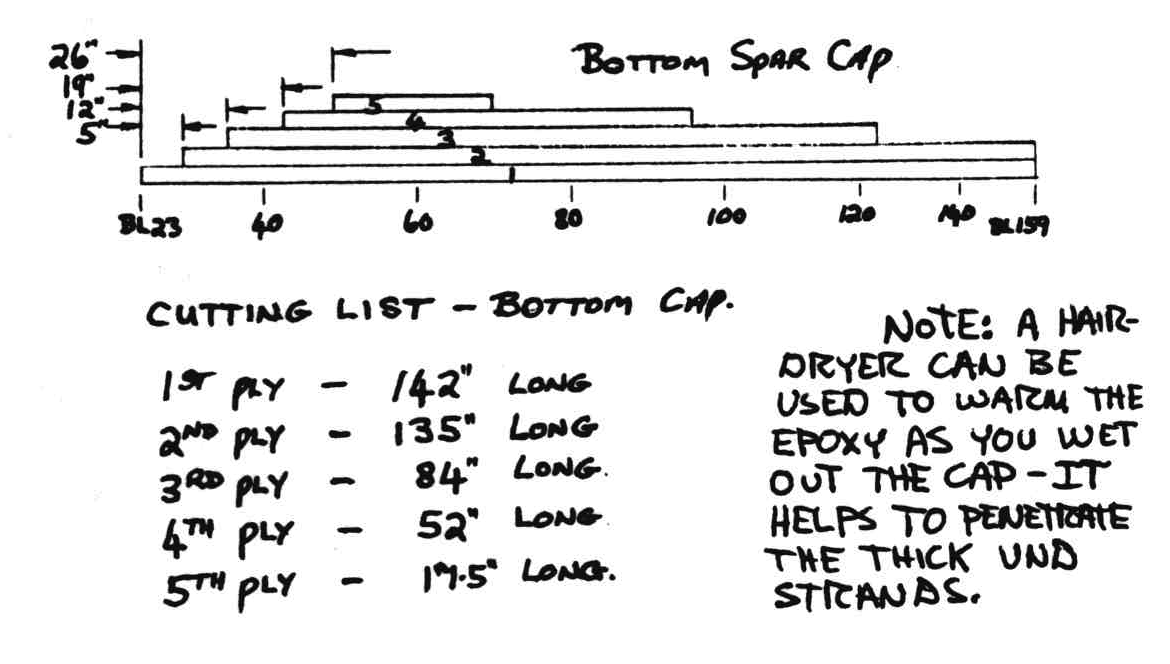 26"
BOTTOM SPAR CAP
19"
12"
5"
5
4
3
2
1
BL23 40 60 80 100 120 140 BL159
CUTTING LIST - BOTTOM CAP.
1ST PLY - 142" LONG
2ND PLY - 135" LONG
3RD PLY - 84" LONG.
4TH PLY - 52" LONG
5TH PLY - 17.5" LONG.
NOTE: A HAIR-
DRYER CAN BE
USED TO WARM THE
EPOXY AS YOU WET
OUT THE CAP - IT
HELPS TO PENETRATE
THE THICK UND
STRANDS.